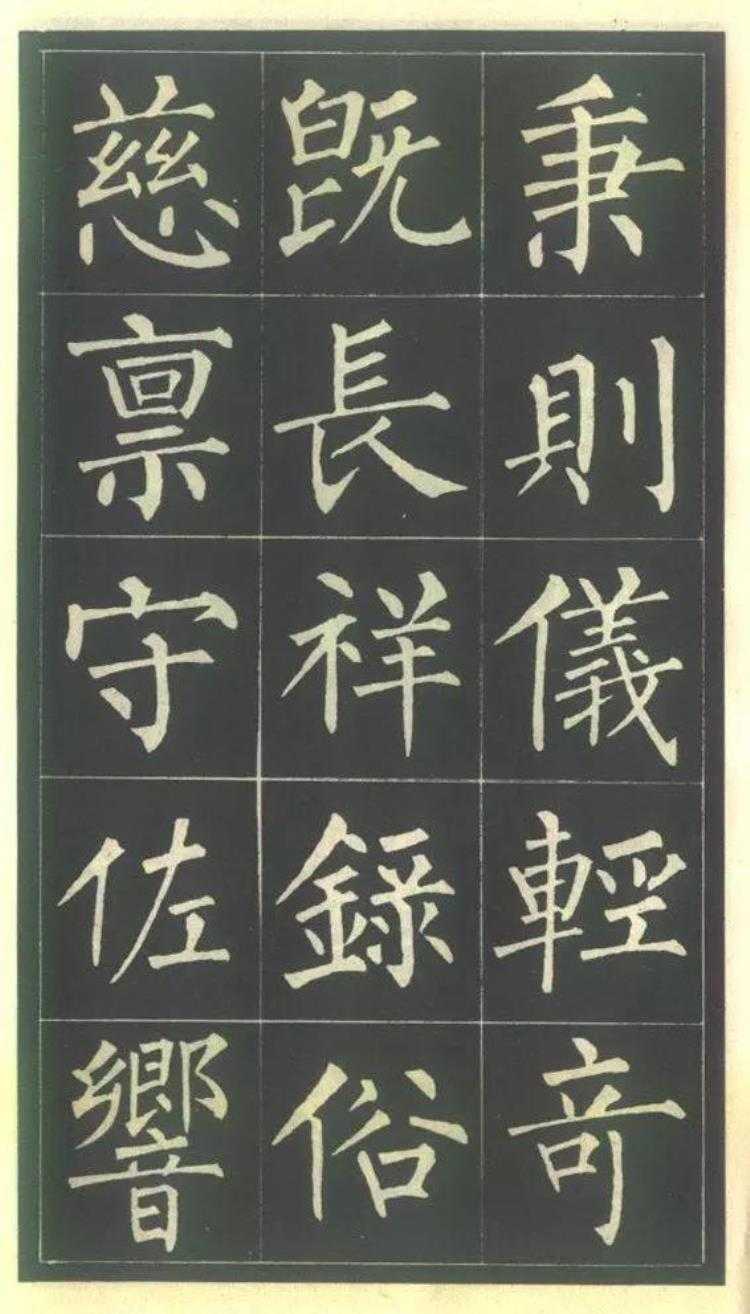 秉則儀輕竒
旣長祥錄俗
慈禀守佐響